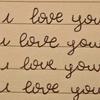 i love you
i love you
i love you
i love you